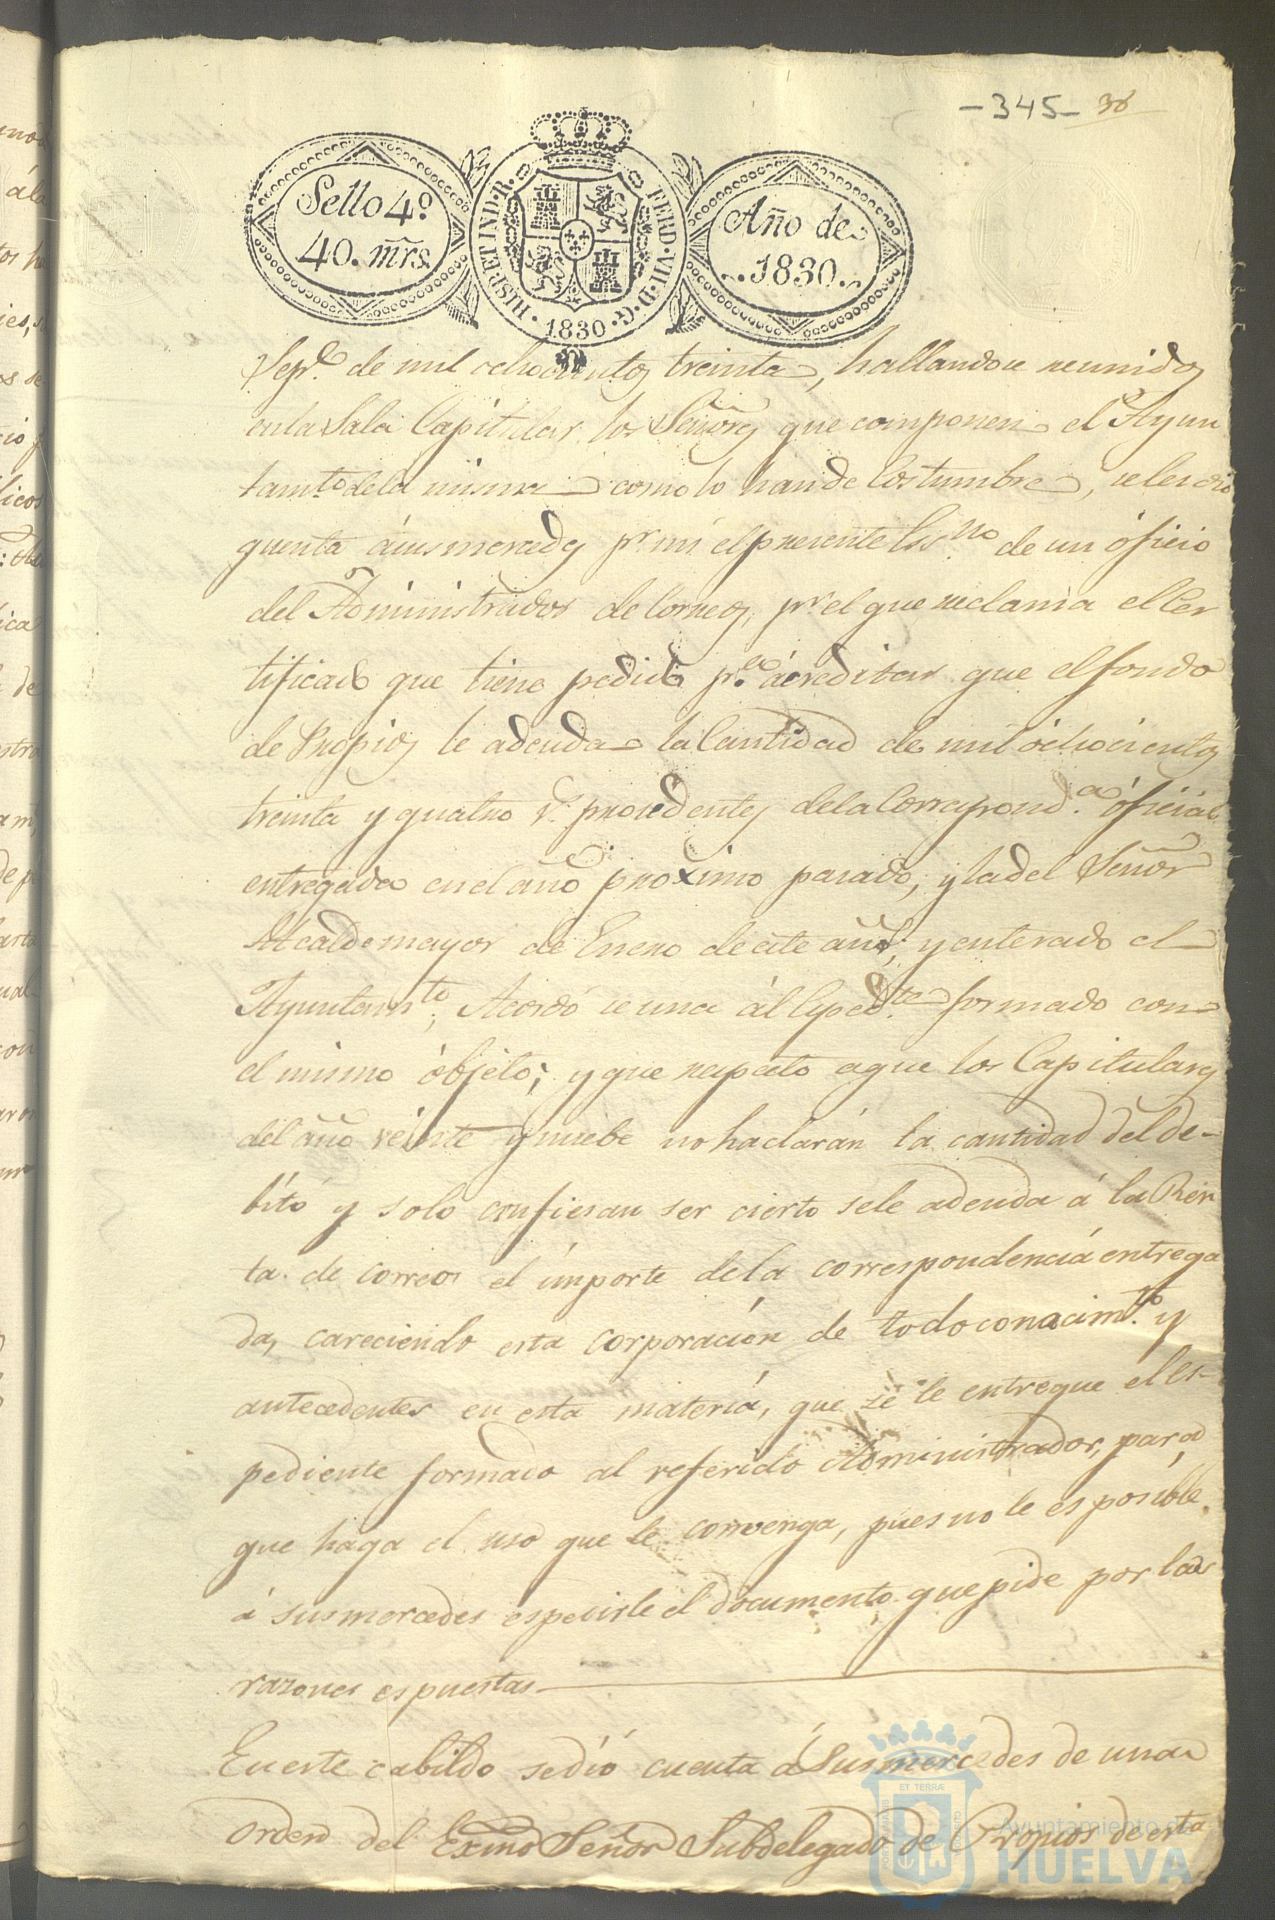 -345- 38
Sello 4.º
40. mrs.
HISP. ET IND. R.
FERD. VII. D. G.
1830
Año de
1830.
Sep.e de mil ochocientos treinta, hallandose reunidos
en la Sala Capitular los Señores que componen el Ayun
tam.to de la misma como lo han de Costumbre, se les dio
quenta á sus mercedes p.r mi el presente Es.no de un óficio
del Administrador de Correos, p.r el que reclama el Cer
tificado que tiene pedido p.a acreditar que el fondo
de Propios le adeuda la Cantidad de mil ochocientos
treinta y quatro r.s procedentes de la Correspond.a óficial
entregada en el año proximo pasado, y la del Señor
Alcalde mayor de Enero de este año; y enterado el
Ayuntam.to, Acordó se una ál Esped.te formado con
el mismo óbjeto; y que respecto a que los Capitulares
del año veinte y nuebe no haclarán la cantidad del de-
bíto y solo confiesan ser cierto sele adeuda á la Ren
ta de correos el ímporte dela correspondenciá entrega
da, careciendo esta corporación de todo conocim.to y
antecedentes en esta matería, que se le entregue el es-
pediente formado al referido Administrador, para
que haga el uso que le convenga, pues no le es posible
á sus mercedes espedirle el documento que pide por las
razones espuestas
En este cabildo se dió cuenta á Sus mercedes de una
orden del Exmo Señor Subdelegado de Propios de esta
ET TERRÆ
Ayuntamiento de
HUELVA